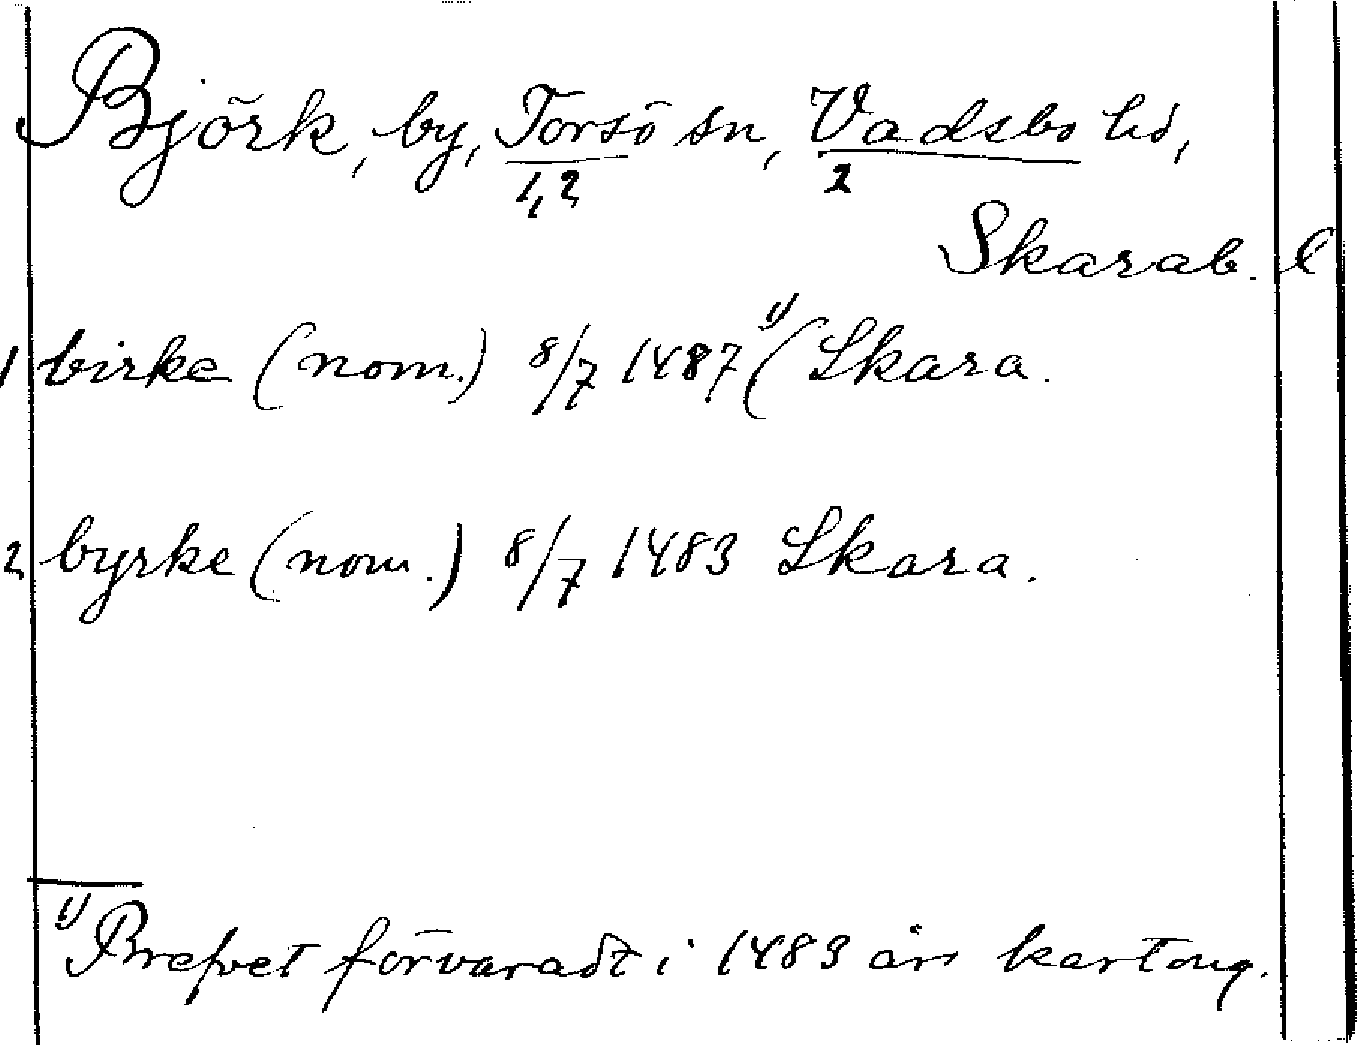 Björk, by, Torsö sn, Vadsbo hd,
1, 2 2
Skarab. l
1 birke (nom.) 8/7 1487 1) ( Skara.
2 byrke (nom.) 8/7 1483 Skara.
1) Brefvet förvaradt i 1483 års kartong.